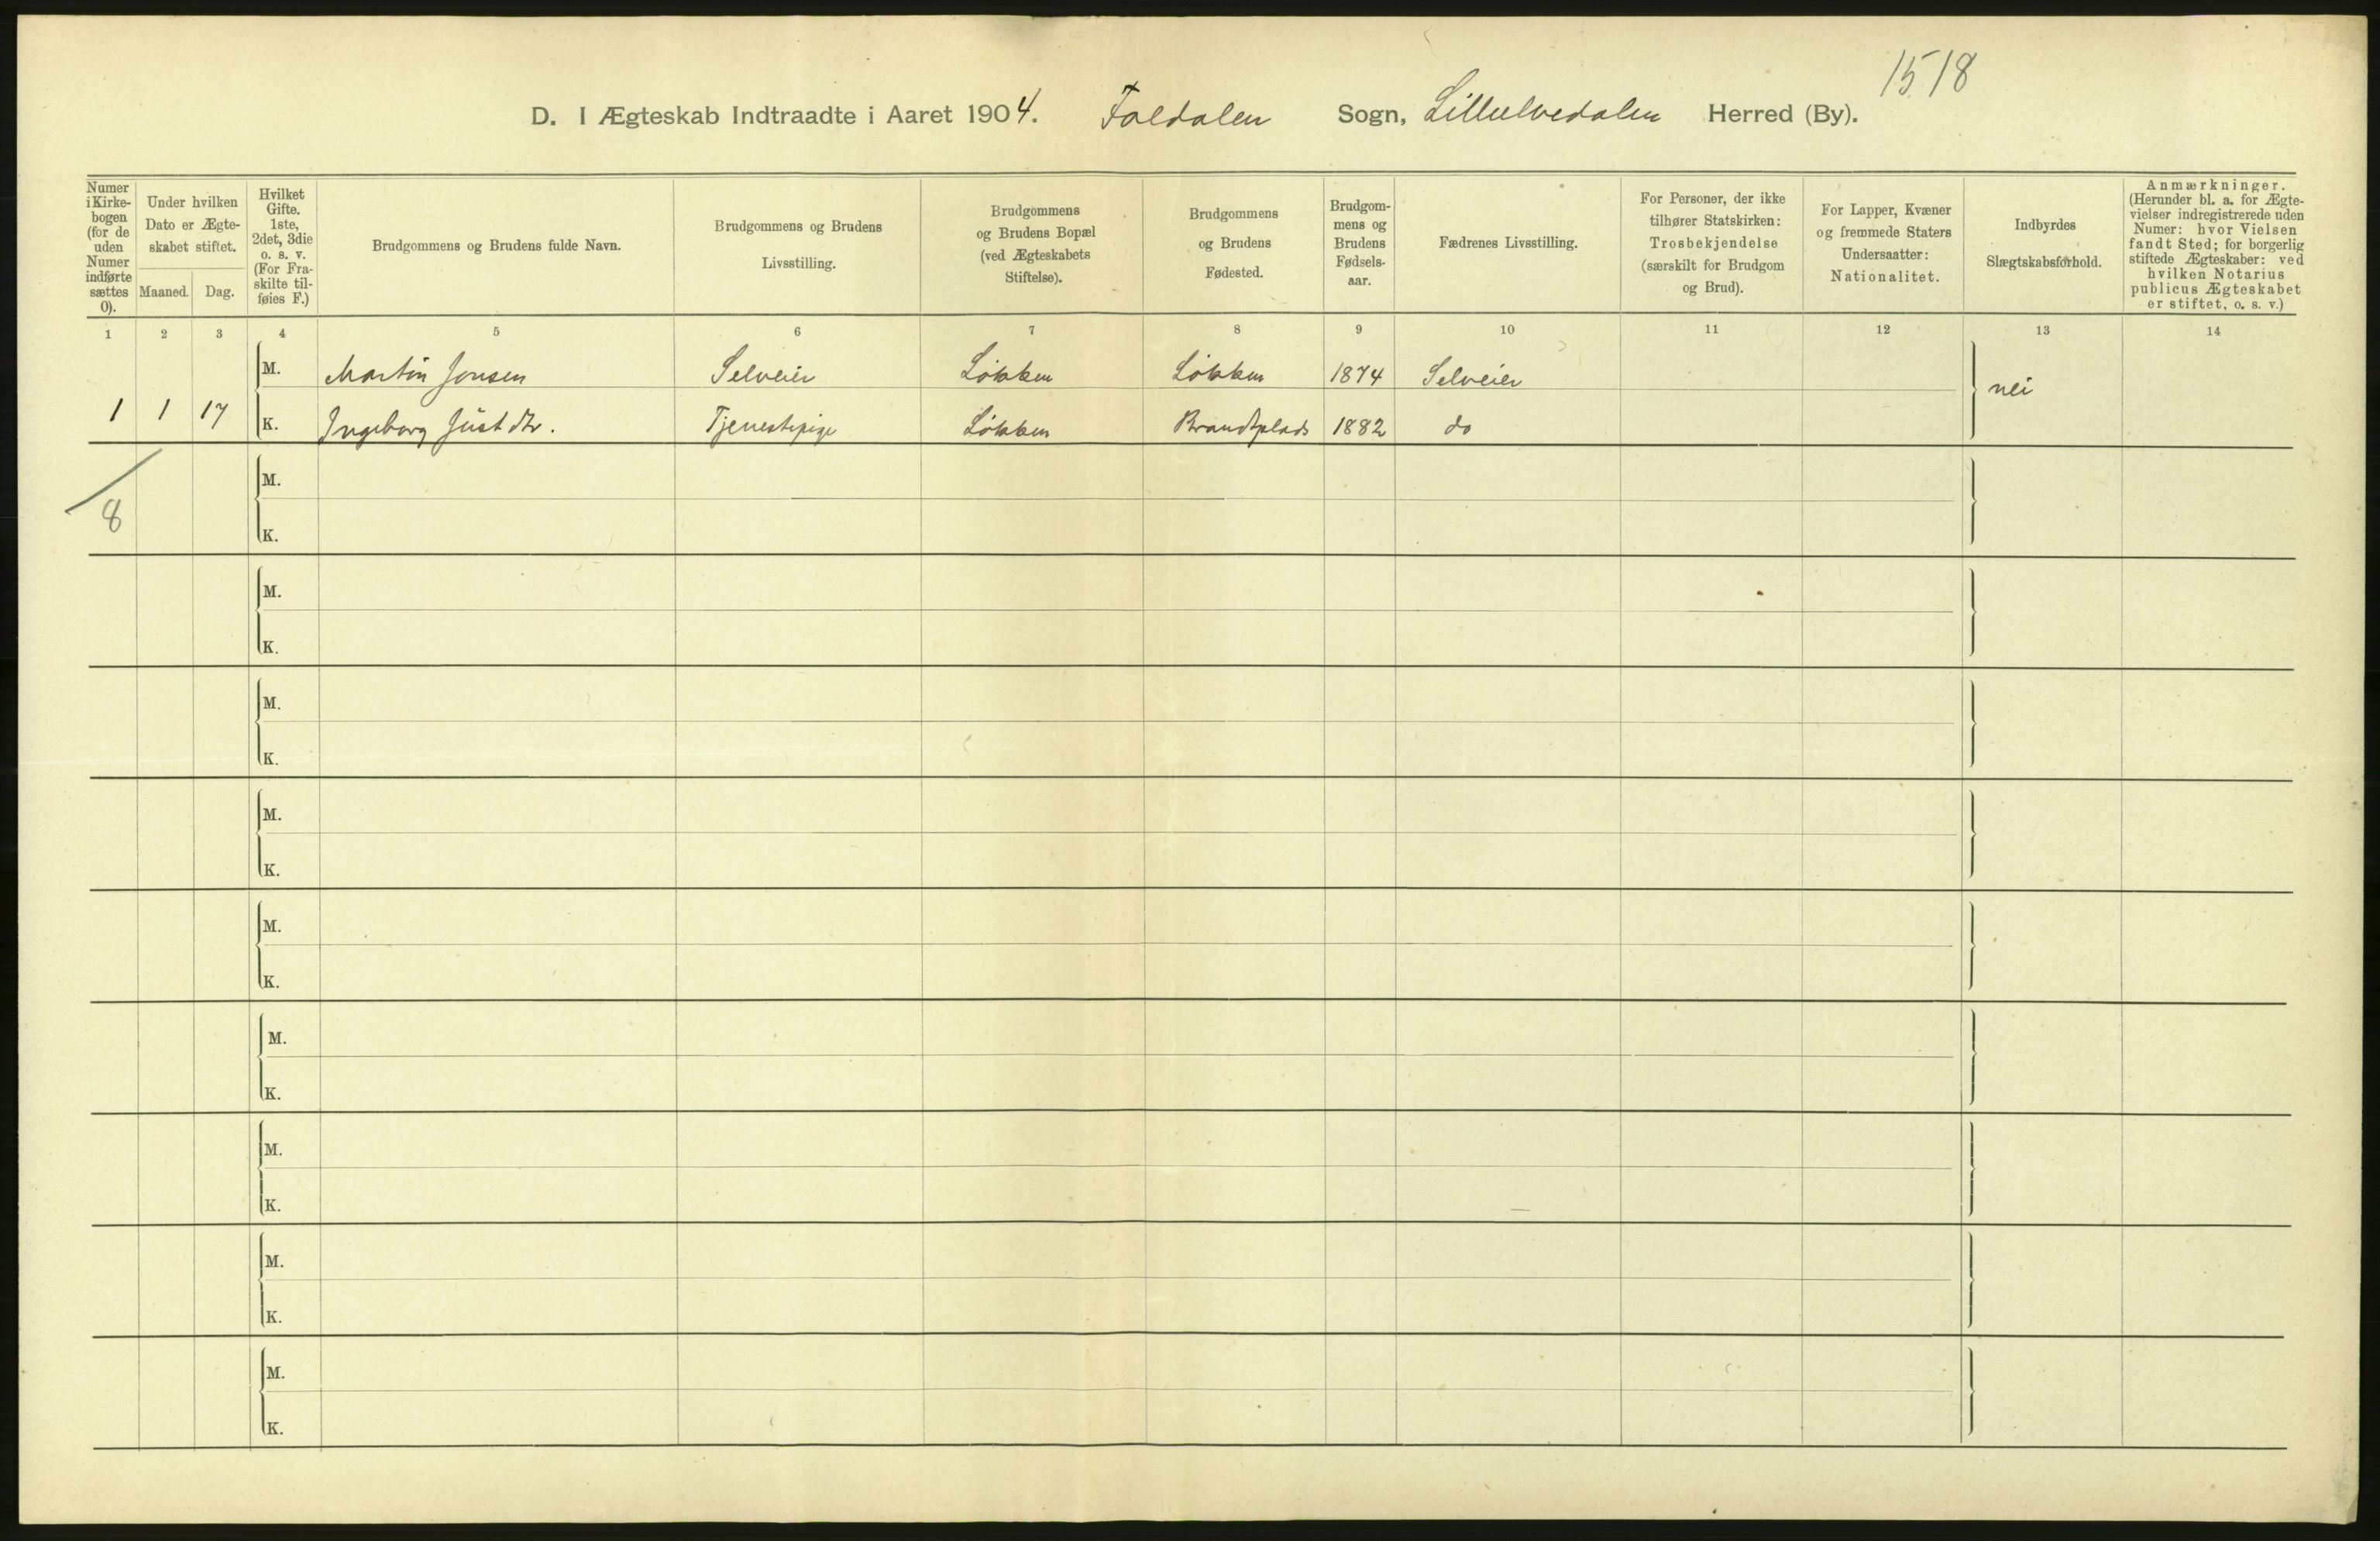 1518
D. I Ægteskab Indtraadte i Aaret 1904. Foldalen Sogn, Lilleelvedalen Herred (By).
Numer i Kirke-bogen (for de uden Numer indførte sættes 0).
Under hvilken Dato er Ægte-skabet stiftet.
Maaned. Dag.
Hvilket Gifte. 1ste, 2det, 3die o. s. v. (For Fra-skilte til-føies F.)
Brudgommens og Brudens fulde Navn.
Brudgommens og Brudens Livsstilling.
Brudgommens og Brudens Bopæl (ved Ægteskabets Stiftelse).
Brudgommens og Brudens Fødested.
Brudgom-mens og Brudens Fødsels-aar.
Fædrenes Livsstilling.
For Personer, der ikke tilhører Statskirken: Trosbekjendelse (særskilt for Brudgom og Brud).
For Lapper, Kvæner og fremmede Staters Undersaatter: Nationalitet.
Indbyrdes Slægtskabsforhold.
Anmærkninger. (Herunder bl. a. for Ægte-vielser indregistrerede uden Numer: hvor Vielsen fandt Sted; for borgerlig stiftede Ægteskaber: ved hvilken Notarius publicus Ægteskabet er stiftet, o. s. v.)
1 2 3 4 5 6 7 8 9 10 11 12 13 14
M. Martin Jonsen Selveier Løkken Løkken 1874 Selveier nei
1 1 17 K. Ingeborg Justdtr. Tjenestepige Løkken Brandtplads 1882 do
M.
8
K.
M.
K.
M.
K.
M.
K.
M.
K.
M.
K.
M.
K.
M.
K.
M.
K.